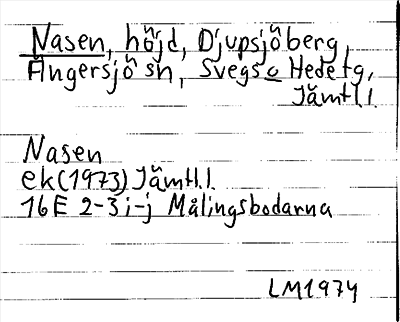 Nasen, höjd, Djupsjöberg,
Ängersjö sn, Svegs o Hede tg,
Jämtl.l.
Nasen
ek (1973) Jämtl.l.
16E 2-3 i-j Målingsbodarna
LM1974